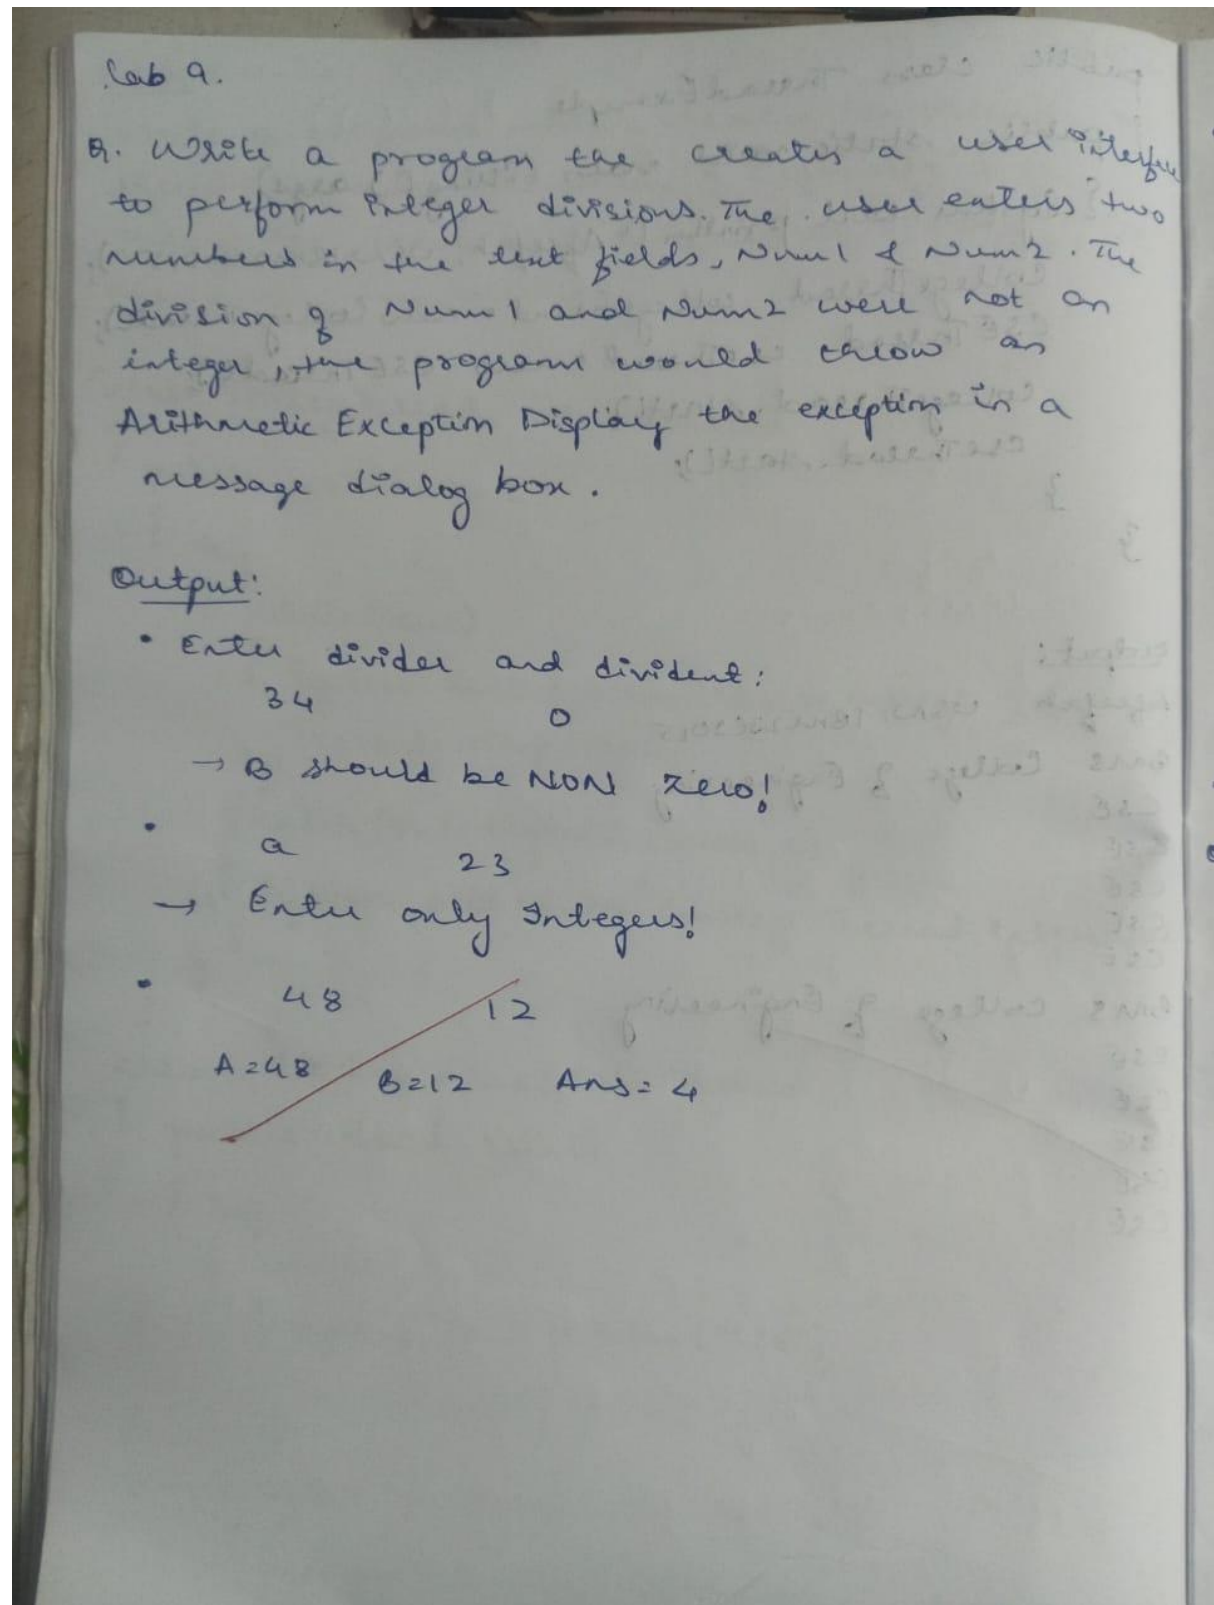 Lab 9.
Q. Write a program the creates a user interface
to perform integer divisions. The user enters two
numbers in the text fields, Num1 & Num2. The
division of Num1 and Num2 were not an
integer, the program would throw an
Arithmetic Exception Display the exception in a
message dialog box.
Output:
• Enter divider and divident:
34 0
→ B should be NON zero!
• a 23
→ Enter only Integers!
• 48 12
A=48 B=12 Ans=4